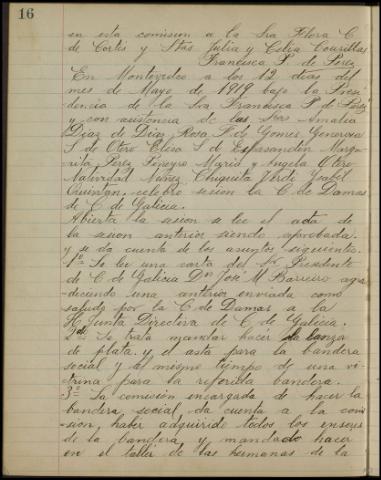 16
en esta comision a la Sra Flora C.
de Cortés y Stas Julia y Celia Courillas
Francisca P. de Perez
En Montevideo a los 12 dias del
mes de Mayo de 1919 bajo la Presi
dencia de la Sra Francisca P. de Perez
y con asistencia de las Sras Amalia
Diaz de Dios Rosa F. de Gomez Generosa
S de Otero Elisa S de Esparandin Marga
rita Perez Pineyro Maria y Angela Otero
Natividad Nuñez Chiquita Verdi Ysabel
Quintan. celebró sesion la C de Damas
de C de Galicia.
Abierta la sesion se lee el acta de
la sesion anterior siendo aprobada.
y se da cuenta de los asuntos siguientes.
1º Se lee una carta del Sr Presidente
de C de Galicia Dn José M. Barreiro agra
deciendo una anterior enviada como
saludo por la C de Damas a la
H. Junta Directiva de C de Galicia.
2do Se trata mandar hacer la lanza
de plata. y el asta para la bandera
social y al mismo tiempo de una vi
trina para la referida bandera.
3º La comision encargada de hacer la
bandera social da cuenta a la comi
sion, haber adquirido todos los enseres
de la bandera y mandado hacer
en el taller de las hermanas de la